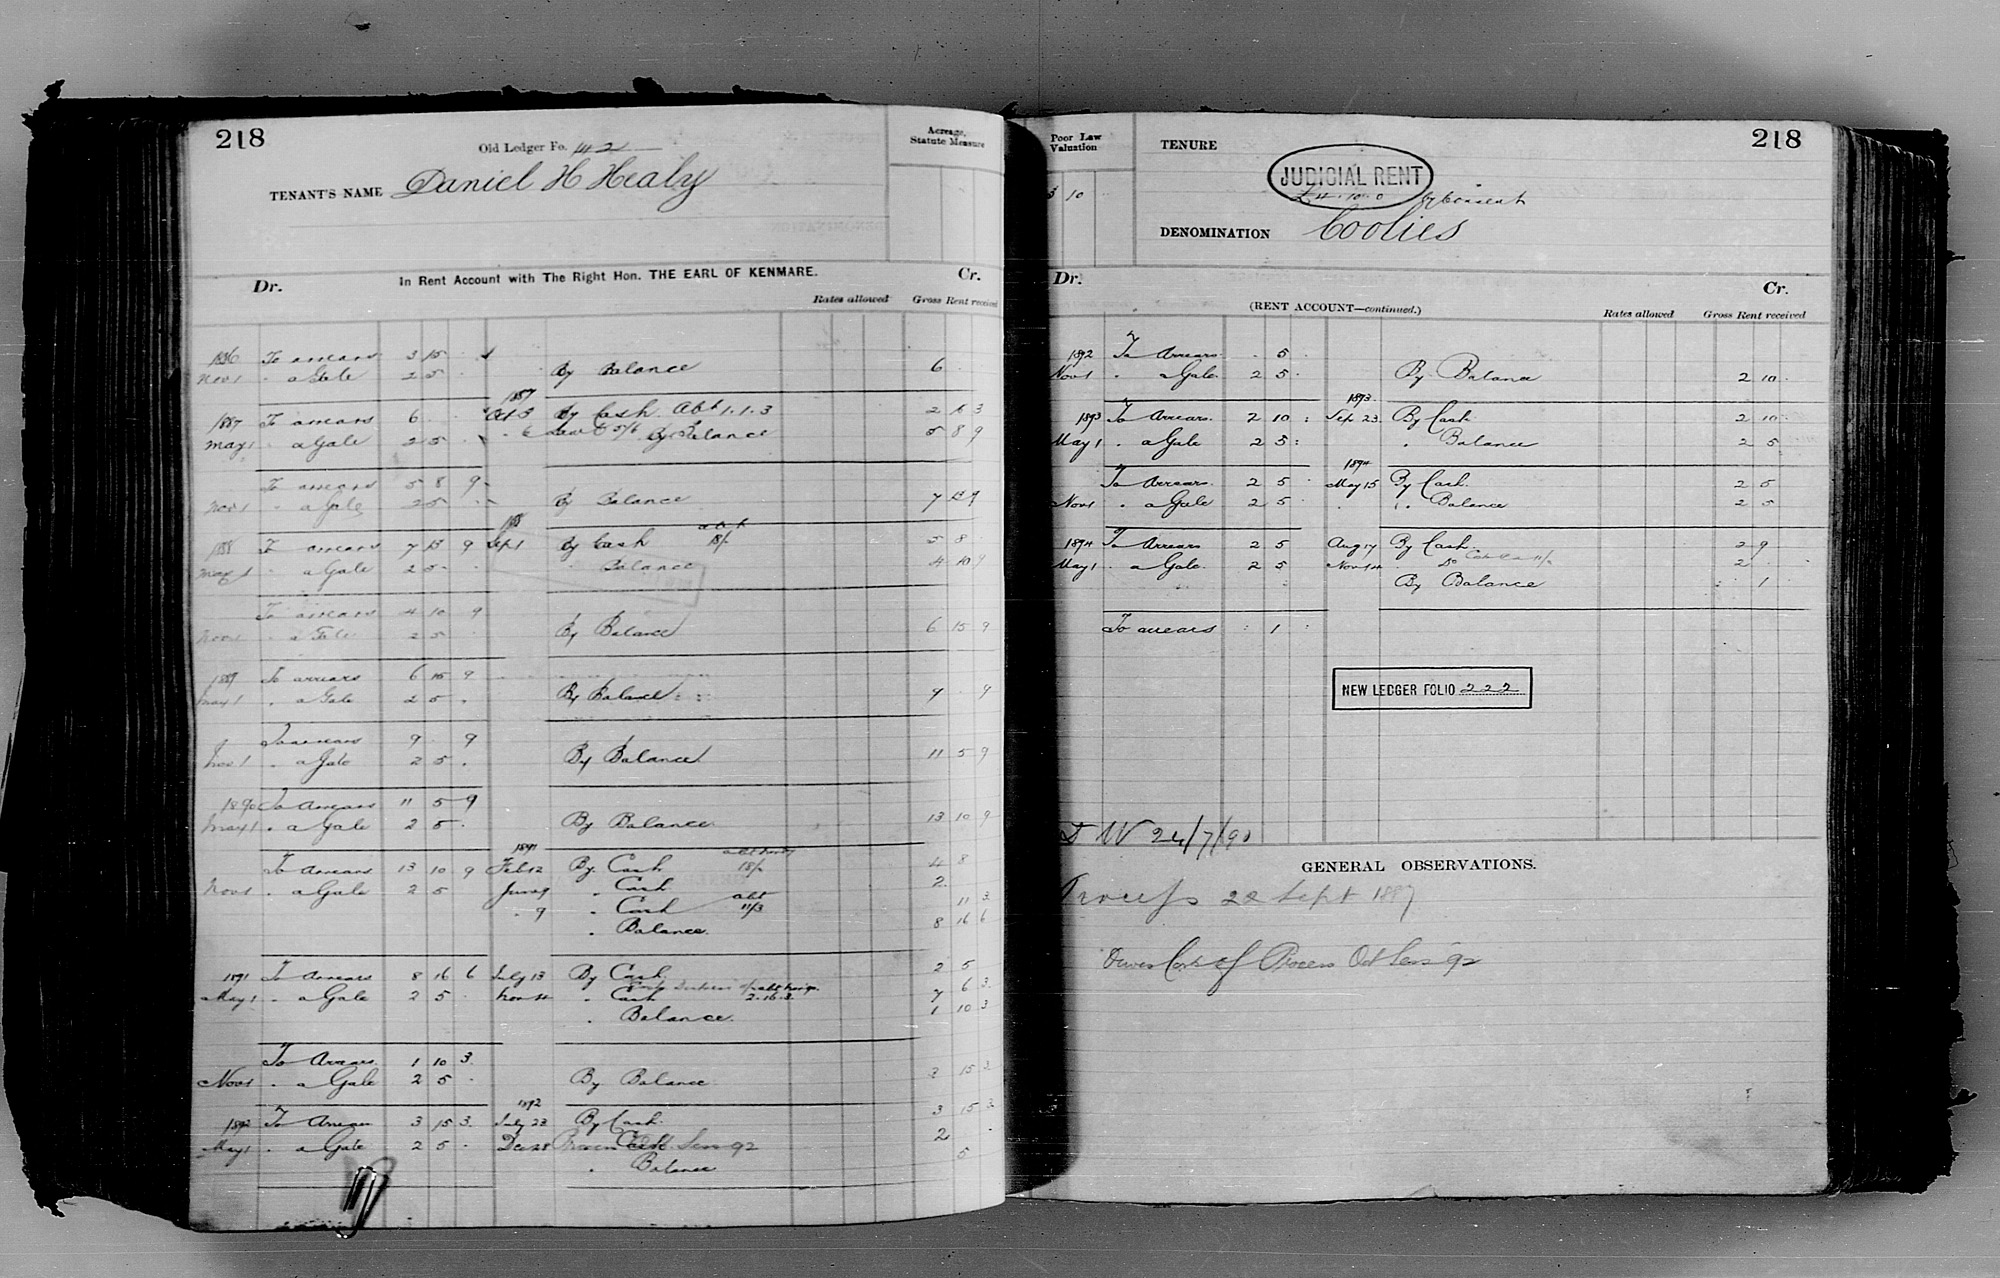 218
Old Ledger Fo. 142
Acreage, Statute Measure
TENANT'S NAME Daniel H Healy
Dr. In Rent Account with The Right Hon. THE EARL OF KENMARE. Cr.
Rates allowed Gross Rent received
1886 To arrears 3 15 .
Nov 1 " a Gale 2 5 . By Balance 6 .
1887
1887 To arrears 6 . . Oct 3 By Cash Abt 1.1.3 2 16 3
May 1 " a Gale 2 5 . By Balance 5 8 9
To arrears 5 8 9
Nov 1 " a Gale 2 5 . By Balance 7 13 9
1888
1888 To arrears 7 13 9 Sept 1 By Cash abt 18/- 5 8
May 1 " a Gale 2 5 . " Balance 4 10 9
To arrears 4 10 9
Nov 1 " a Gale 2 5 . By Balance 6 15 9
1889 To arrears 6 15 9
May 1 " a Gale 2 5 . By Balance 9 . 9
To arrears 9 . 9
Nov 1 " a Gale 2 5 . By Balance 11 5 9
1890 To Arrears 11 5 9
May 1 " a Gale 2 5 . By Balance 13 10 9
1891
To Arrears 13 10 9 Feb 12 By Cash 18/- 4 8
Nov 1 " a Gale 2 5 June 9 " Cash 2
" 9 " Cash abt 11/3 11 3
" Balance 8 16 6
1891 To Arrears 8 16 6 July 13 By Cash 2 5
6 3
May 1 " a Gale 2 5 . Nov 14 " Cash 2.16.3 7
" Balance 1 10 3
To Arrears 1 10 3
Nov 1 " a Gale 2 5 . By Balance 3 15 3
1892
1892 To Arrears 3 15 3 July 23 By Cash 3 15 3
May 1 " a Gale 2 5 . Dec 28 Process Cash Sess 92 2 .
" Balance 5
218
Poor Law Valuation
3 10
TENURE
JUDICIAL RENT
£4.10.0 by Consent
DENOMINATION Coolies
Dr. Cr.
(RENT ACCOUNT—continued.)
Rates allowed Gross Rent received
1892 To Arrears . 5 .
Nov 1 " a Gale 2 5 . By Balance 2 10
1893
1893 To Arrears 2 10 : Sep 23 By Cash 2 10
May 1 " a Gale 2 5 : " Balance 2 5
1894
To Arrears 2 5 May 15 By Cash 2 5
Nov 1 " a Gale 2 5 " Balance 2 5
1894 To Arrears 2 5 Aug 17 By Cash 2 9
May 1 " a Gale 2 5 Nov 14 " Do 11/- 2 .
By Balance : 1
To arrears : 1 :
NEW LEDGER FOLIO 222
D W 24/7/90
GENERAL OBSERVATIONS.
Process 22 Sept 1887
Owes Cost of Process Oct Sess 92